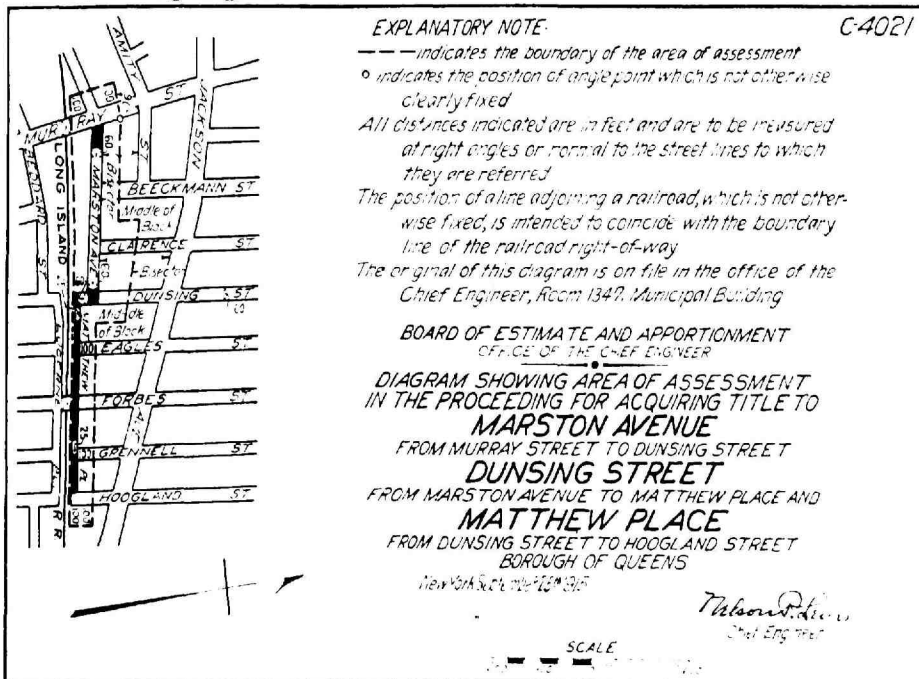 C-4021
EXPLANATORY NOTE-
indicates the boundary of the area of assessment
indicates the position of angle point which is not otherwise
clearly fixed
All distances indicated are in feet and are to be measured
at right angles or normal to the street lines to which
they are referred
The position of a line adjoining a railroad, which is not other-
wise fixed, is intended to coincide with the boundary
line of the railroad right-of-way
The original of this diagram is on file in the office of the
Chief Engineer, Room 1347, Municipal Building
BOARD OF ESTIMATE AND APPORTIONMENT
OFFICE OF THE CHIEF ENGINEER
DIAGRAM SHOWING AREA OF ASSESSMENT
IN THE PROCEEDING FOR ACQUIRING TITLE TO
MARSTON AVENUE
FROM MURRAY STREET TO DUNSING STREET
DUNSING STREET
FROM MARSTON AVENUE TO MATTHEW PLACE AND
MATTHEW PLACE
FROM DUNSING STREET TO HOOGLAND STREET
BOROUGH OF QUEENS
New York
Chief Engineer
SCALE
AMITY ST
JACKSON
MURRAY ST
100
60
Bisector
LONG ISLAND
MARSTON AVE
ST
BEECKMANN ST
Middle of
Block
CLARENCE ST
Bisector
100
DUNSING ST
Middle
of Block
EAGLES ST
FORBES ST
GRENNELL ST
PL
HOOGLAND ST
100
RR